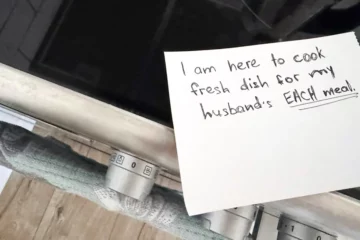 I am here to cook
fresh dish for my
husband's EACH meal.